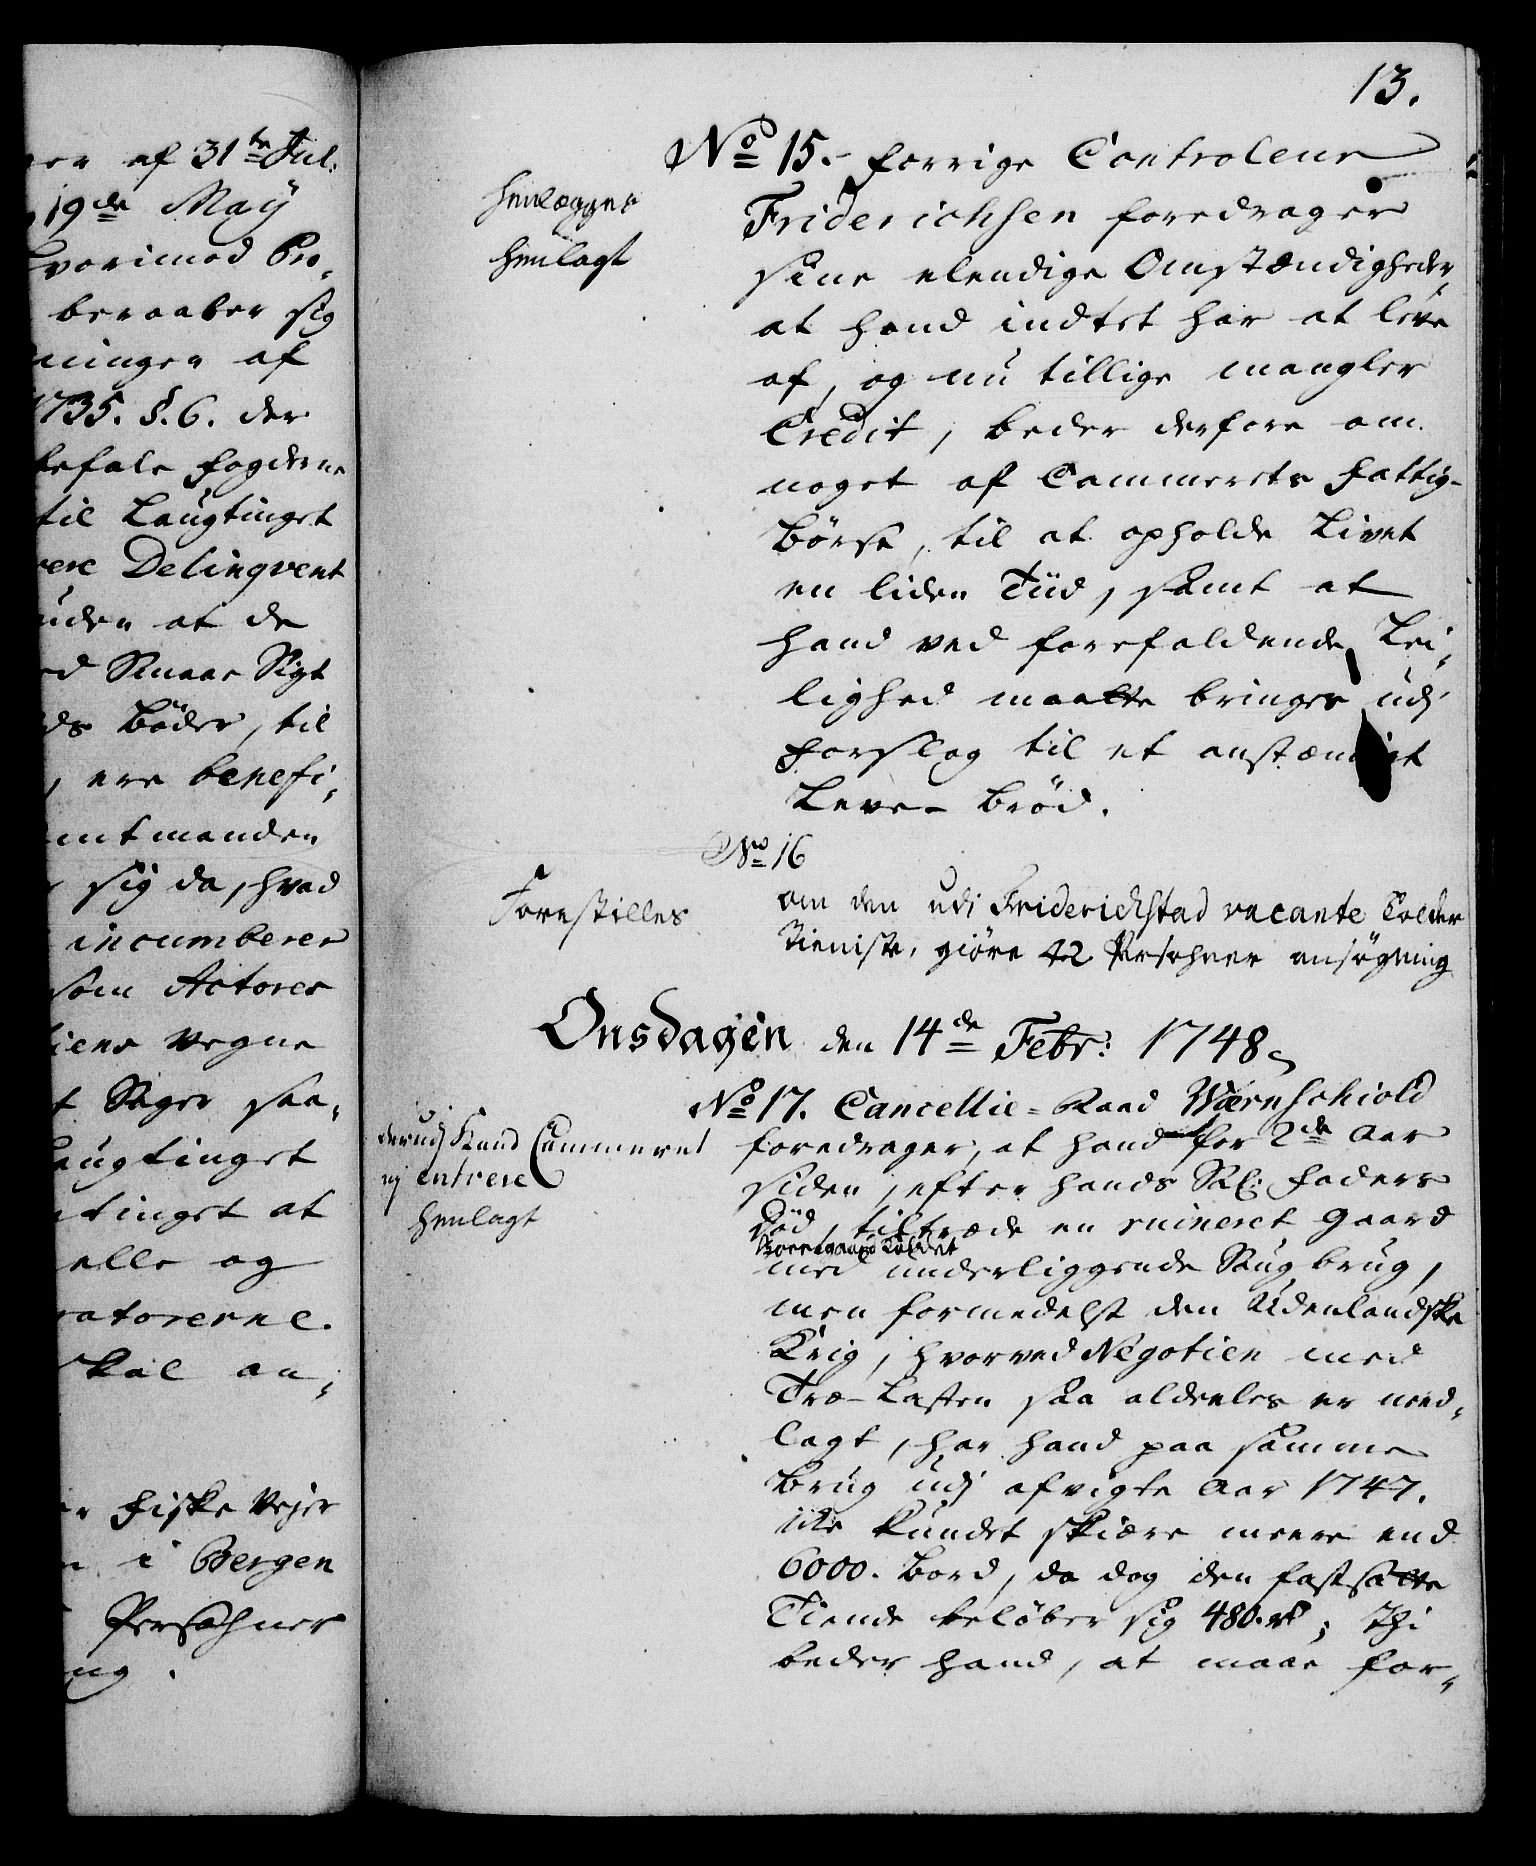 er af 31te Jul:
19de Maÿ
vorimod Pro,
beraaber sig
ninger af
1735. §. 6. der
befale fogderne
til Laugtinget
vere Delinqvent
uden at de
Smaae Sigt
ds Bøder, til
, ere benefi,
mtmanden
sig da, hvad
incumberer
som Actores
iens Vegne
t Sager saa,
Laugtinget
tinget at
elle og
ratorerne.
skal an,
er Fiske Vejer
i Bergen
Persohner
ng.
13.
No 15. forrige Controleur
Friderichsen foredrager
sine elendige Omstændigheder,
at hand indtet har at leve
af, og nu tillige mangler
Credit, beder derfore om
noget af Cammerets Fattig-
børse, til at opholde Livet
en liden Tiid, samt at
hand ved forefaldende Lei,
lighed maatte bringes udj
forslag til et anstændigt
Leve-brød.
henlægges
henlagt
No 16
om den udi Friderichstad vacante Tolder
Tieniste, giøre 42 Persohner ansøgning
Forestilles
Onsdagen den 14de Febr: 1748
No 17. Cancellie-Raad Wærnschiold
foredrager, at hand for 2de Aar
siden, efter hands Sal: Faders
Død, tiltræde en ruineret Gaard
Borregaard kaldet
med underliggende Saugbrug,
men formedelst den Udenlandske
Krig, hvorved Negotien med
Træ-Lasten saa aldeeles er need,
lagt, har hand paa samme
brug udj afvigte Aar 1747.
ikke kundet skiære meere end
6000. bord, da dog den fastsatte
Tiende beløber sig 480. rd; Thi
beder hand, at maae for,
derudj Kand Cammeret
ej entrere
henlagt